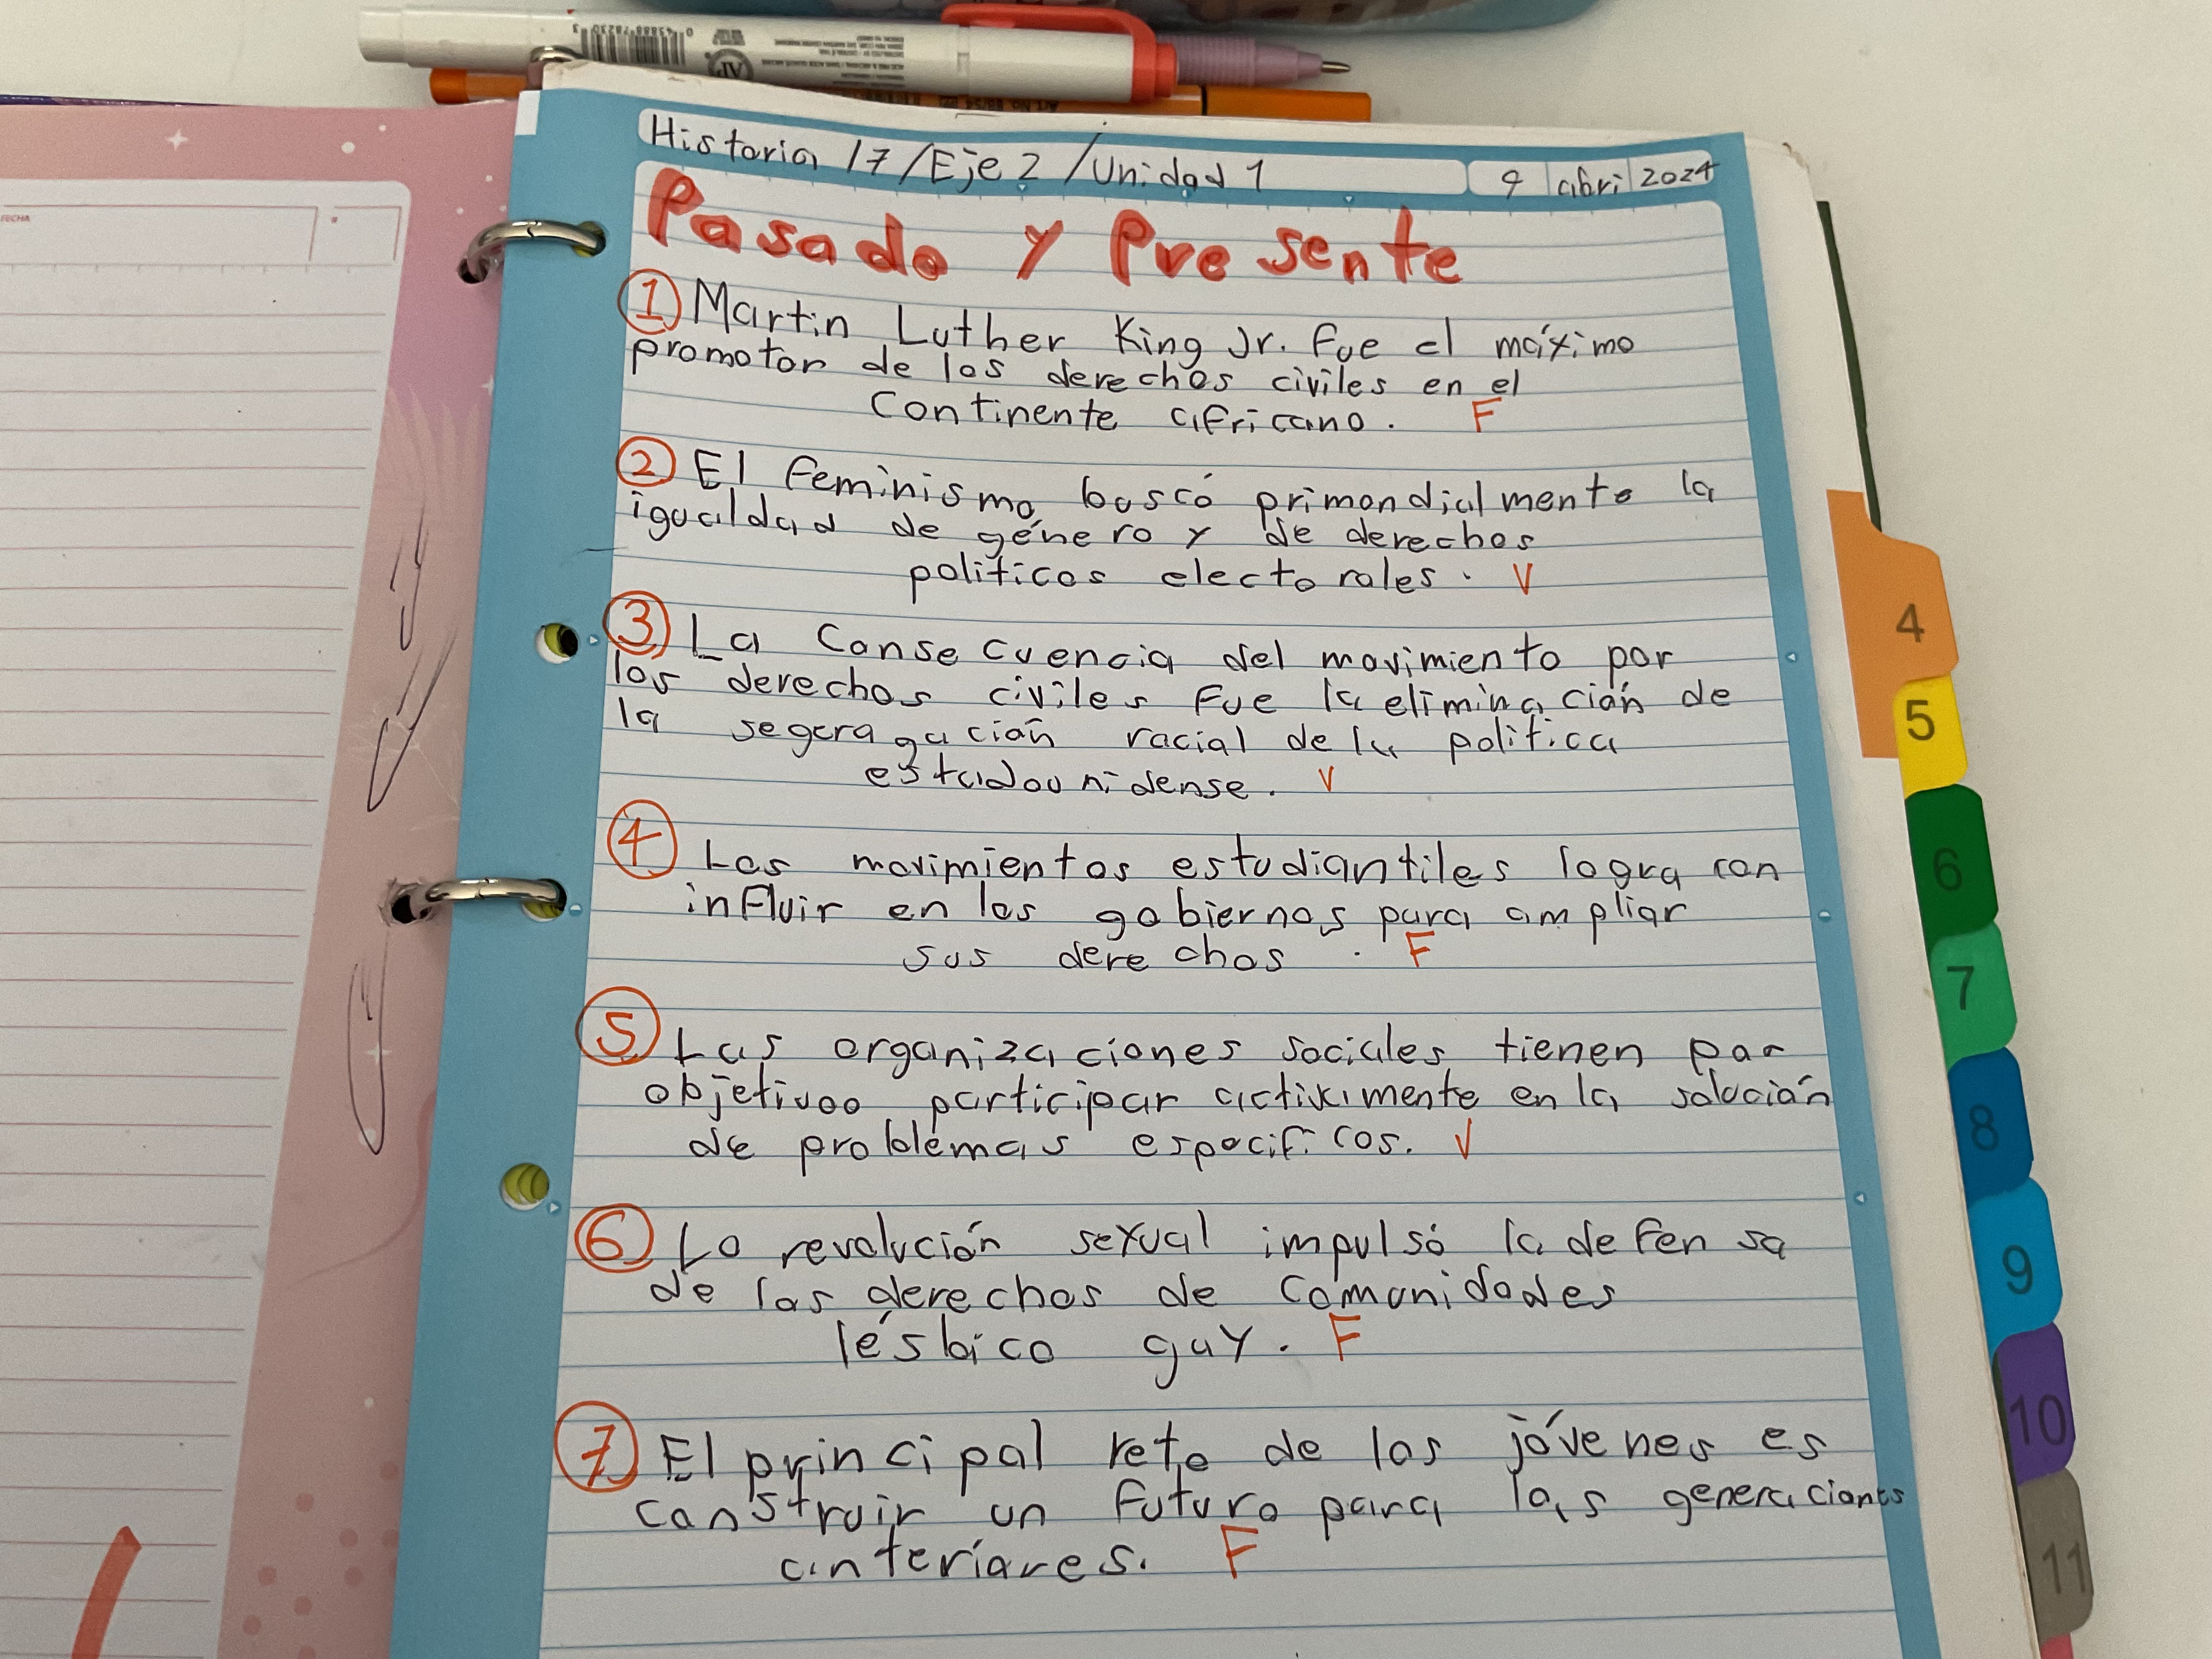 0 45888 78230 3
AP
FECHA
Historia 17/Eje 2/Unidad 1
9 abri 2024
Pasado y Presente
1 Martin Luther King Jr. fue el máximo
promotor de los derechos civiles en el
Continente africano. F
2 El feminismo boscó primondialmente la
igualdad de género y de derechos
políticos electorales. V
3 La Consecuencia del movimiento por
los derechos civiles fue la eliminación de
la segeragación racial de la política
estadounidense. V
4 Los movimientos estudiantiles logra ron
influir en los gobiernos para ampliar
sus derechos. F
5 Las organizaciones sociales tienen por
objetivoo participar activamente en la solución
de problemas especificos. V
6 La revolución sexual impulsó la defensa
de los derechos de Comunidades
lésbico gay. F
7 El principal reto de los jóvenes es
construir un futuro para las generaciones
anteriores. F
4
5
6
7
8
9
10
11